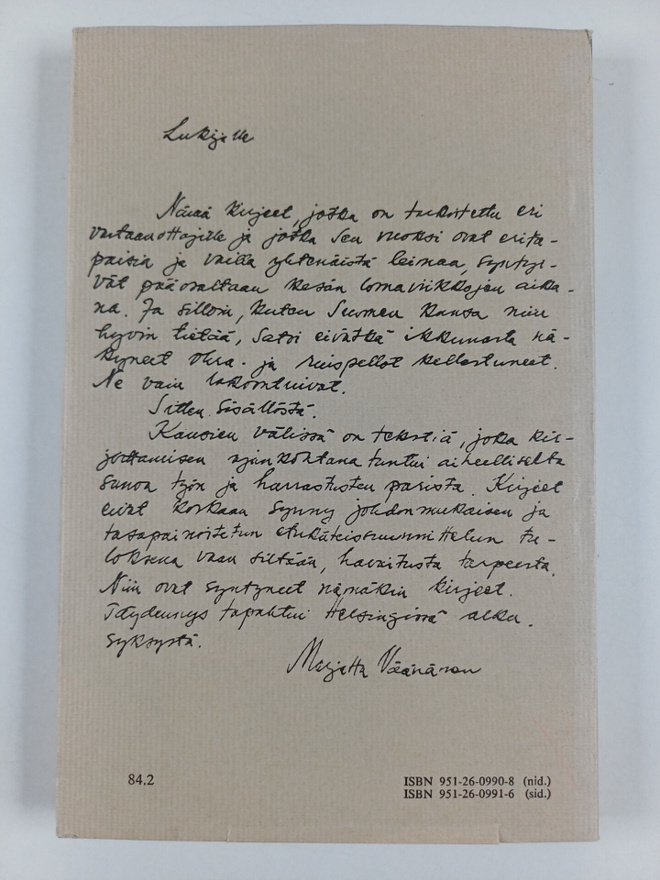 Lukijalle
Nämä kirjeet, jotka on tarkoitettu eri
vastaanottajille ja jotka sen vuoksi ovat erita-
paisia ja vailla yhtenäistä leimaa, syntyi-
vät pääosaltaan kesän lomaviikkojen aika-
na. Ja silloin, kuten Suomen kansa niin
hyvin tietää, satoi eivätkä ikkunasta nä-
kyneet ohra- ja ruispellot kellastuneet.
Ne vain lakoontuivat.
Sitten sisällöstä.
Kansien välissä on tekstiä, joka kir-
joittamisen ajankohtana tuntui aiheelliselta
sanoa työn ja harrastusten parista. Kirjeet
eivät koskaan synny johdonmukaisen ja
tasapainoitetun etukäteissuunnittelun tu-
loksena vaan siltään, havaitusta tarpeesta.
Niin ovat syntyneet nämäkin kirjeet.
Täydennys tapahtui Helsingissä alku-
syksystä.
Marjatta Väänänen
84.2
ISBN 951-26-0990-8 (nid.)
ISBN 951-26-0991-6 (sid.)